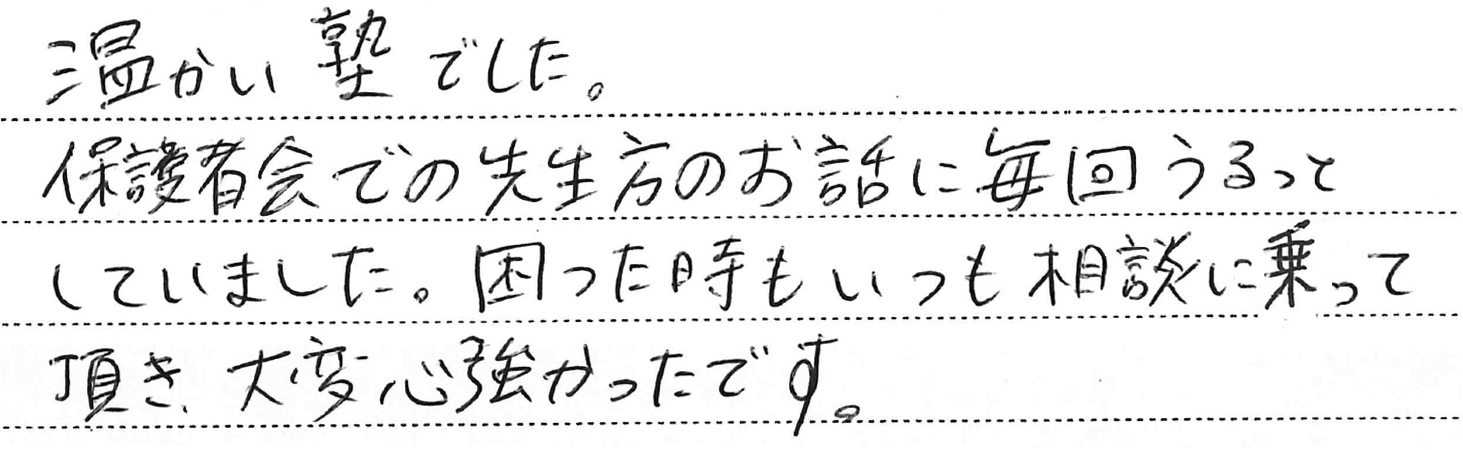 温かい塾でした。
保護者会での先生方のお話に毎回うるっと
していました。困った時もいつも相談に乗って
頂き、大変心強かったです。